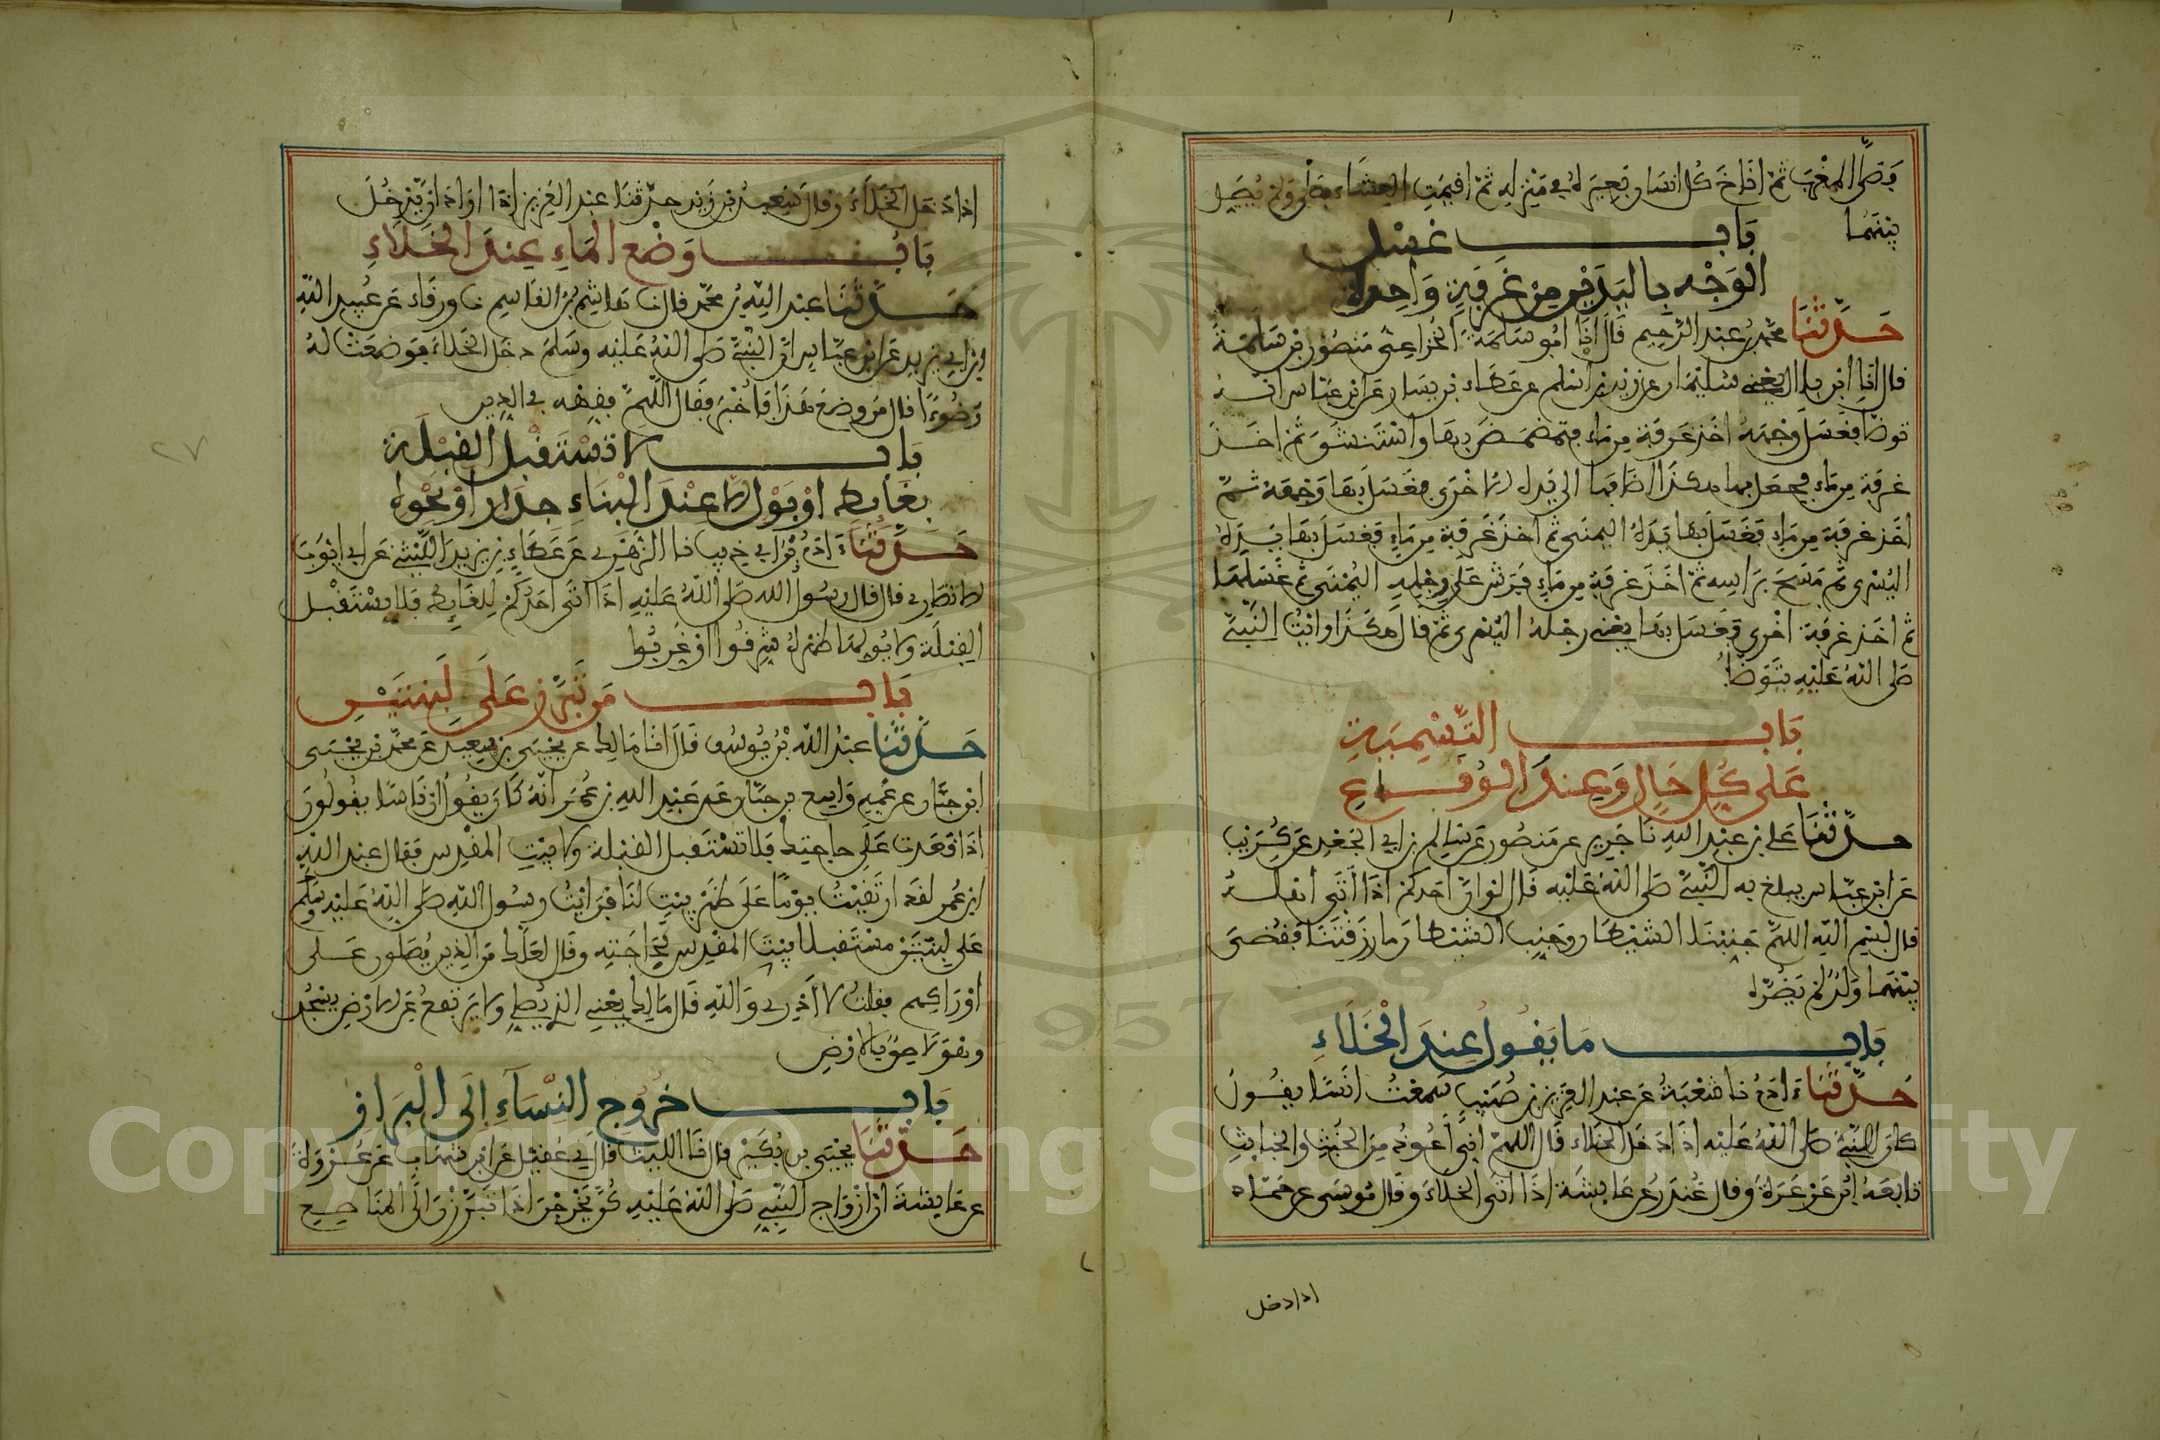 فصلى المغرب ثم اناخ كل انسان بعيره في منزله ثم اقيمت العشاء فصلى ولم يصل
بينهما
باب غسل
الوجه باليدين من غرفة واحدة
حدثنا محمد بن عبد الرحيم قال انا ابو سلمة الخزاعي منصور بن سلمة
قال انا ابن بلال يعني سليمان عن زيد بن اسلم عن عطاء بن يسار عن ابن عباس انه
توضا فغسل وجهه اخذ غرفة من ماء فتمضمض بها واستنشق ثم اخذ
غرفة من ماء فجعل بها هكذا اضافها الى يده الاخرى فغسل بها وجهه ثم
اخذ غرفة من ماء فغسل بها يده اليمنى ثم اخذ غرفة من ماء فغسل بها يده
اليسرى ثم مسح براسه ثم اخذ غرفة من ماء فرش على رجله اليمنى ثم غسلها
ثم اخذ غرفة اخرى فغسل بها يعني رجله اليسرى ثم قال هكذا رايت النبي
صلى الله عليه يتوضا
باب التسمية
على كل حال وعند الوقاع
حدثنا علي بن عبد الله نا جرير عن منصور عن سالم بن ابي الجعد عن كريب
عن ابن عباس يبلغ به النبي صلى الله عليه قال لو ان احدكم اذا اتى اهله
قال بسم الله اللهم جنبنا الشيطان وجنب الشيطان ما رزقتنا فقضي
بينهما ولد لم يضره
باب ما يقول عند الخلاء
حدثنا ءادم نا شعبة عن عبد العزيز بن صهيب سمعت انسا يقول
كان النبي صلى الله عليه اذا دخل الخلاء قال اللهم اني اعوذ من الخبث والخبائث
تابعه ابن عرعرة وقال غندر عن شعبة اذا اتى الخلاء وقال موسى عن حماد
اذا دخل
اذا دخل الخلاء وقال سعيد بن زيد حدثنا عبد العزيز اذا اراد ان يدخل
باب وضع الماء عند الخلاء
حدثنا عبد الله بن محمد قال نا هاشم بن القاسم نا ورقاء عن عبيد الله
ابن ابي يزيد عن ابن عباس ان النبي صلى الله عليه وسلم دخل الخلاء فوضعت له
وضوءا قال من وضع هذا فاخبر فقال اللهم فقهه في الدين
باب لا تستقبل القبلة
بغائط او بول الا عند البناء جدار او نحوه
حدثنا ءادم نا ابن ابي ذيب نا الزهري عن عطاء بن يزيد الليثي عن ابي ايوب
الانصاري قال قال رسول الله صلى الله عليه اذا اتى احدكم الغائط فلا يستقبل
القبلة ولا يولها ظهره شرقوا او غربوا
باب من تبرز على لبنتين
حدثنا عبد الله بن يوسف قال انا مالك عن يحيى بن سعيد عن محمد بن يحيى
ابن حبان عن عمه واسع بن حبان عن عبد الله بن عمر انه كان يقول ان ناسا يقولون
اذا قعدت على حاجتك فلا تستقبل القبلة ولا بيت المقدس فقال عبد الله
ابن عمر لقد ارتقيت يوما على ظهر بيت لنا فرايت رسول الله صلى الله عليه وسلم
على لبنتين مستقبلا بيت المقدس لحاجته وقال لعلك من الذين يصلون على
اوراكهم فقلت لا ادري والله قال مالك يعني الذي يصلي ولا يرتفع عن الارض يسجد
وهو لاصق بالارض
باب خروج النساء الى البراز
حدثنا يحيى بن بكير قال نا الليث قال ني عقيل عن ابن شهاب عن عروة
عن عائشة ان ازواج النبي صلى الله عليه كن يخرجن اذا تبرزن الى المناصع
٢٧
Copyright © King Saud University
1957